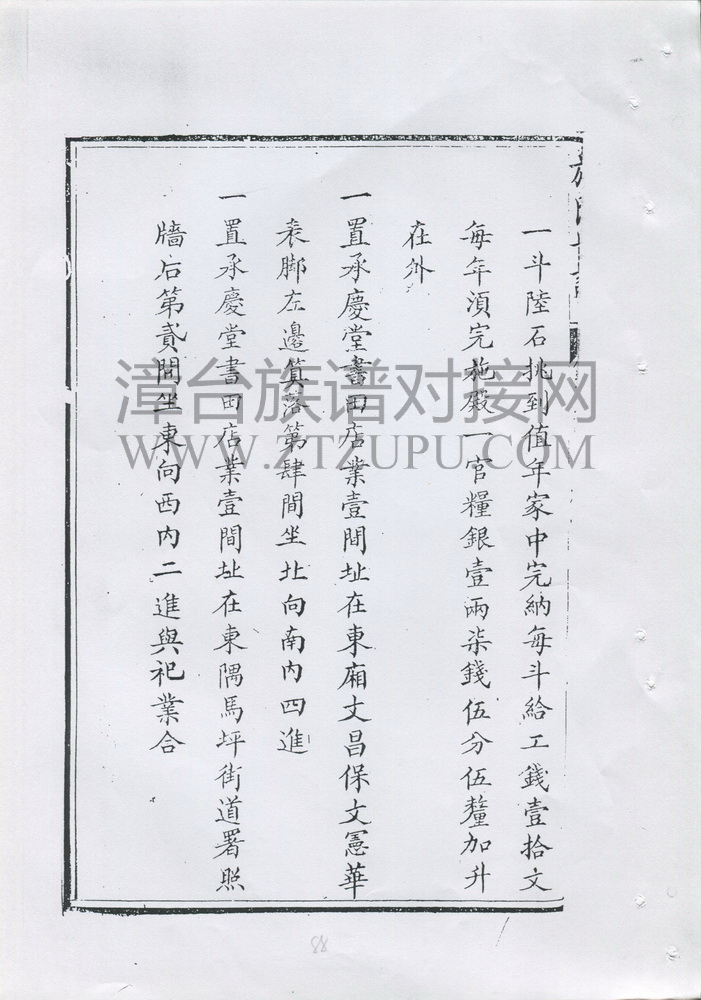 一斗陸石挑到值年家中完納每斗給工錢壹拾文
每年湏完施殿一官糧銀壹兩柒錢伍分伍釐加升
在外
一置承慶堂書田店業壹間址在東廂文昌保文憲華
表脚左邊算落第肆間坐北向南内四進
一置承慶堂書田店業壹間址在東隅馬坪街道署照
牆后第貳間坐東向西内二進與祀業合
漳台族谱对接网
WWW.ZTZUPU.COM
88